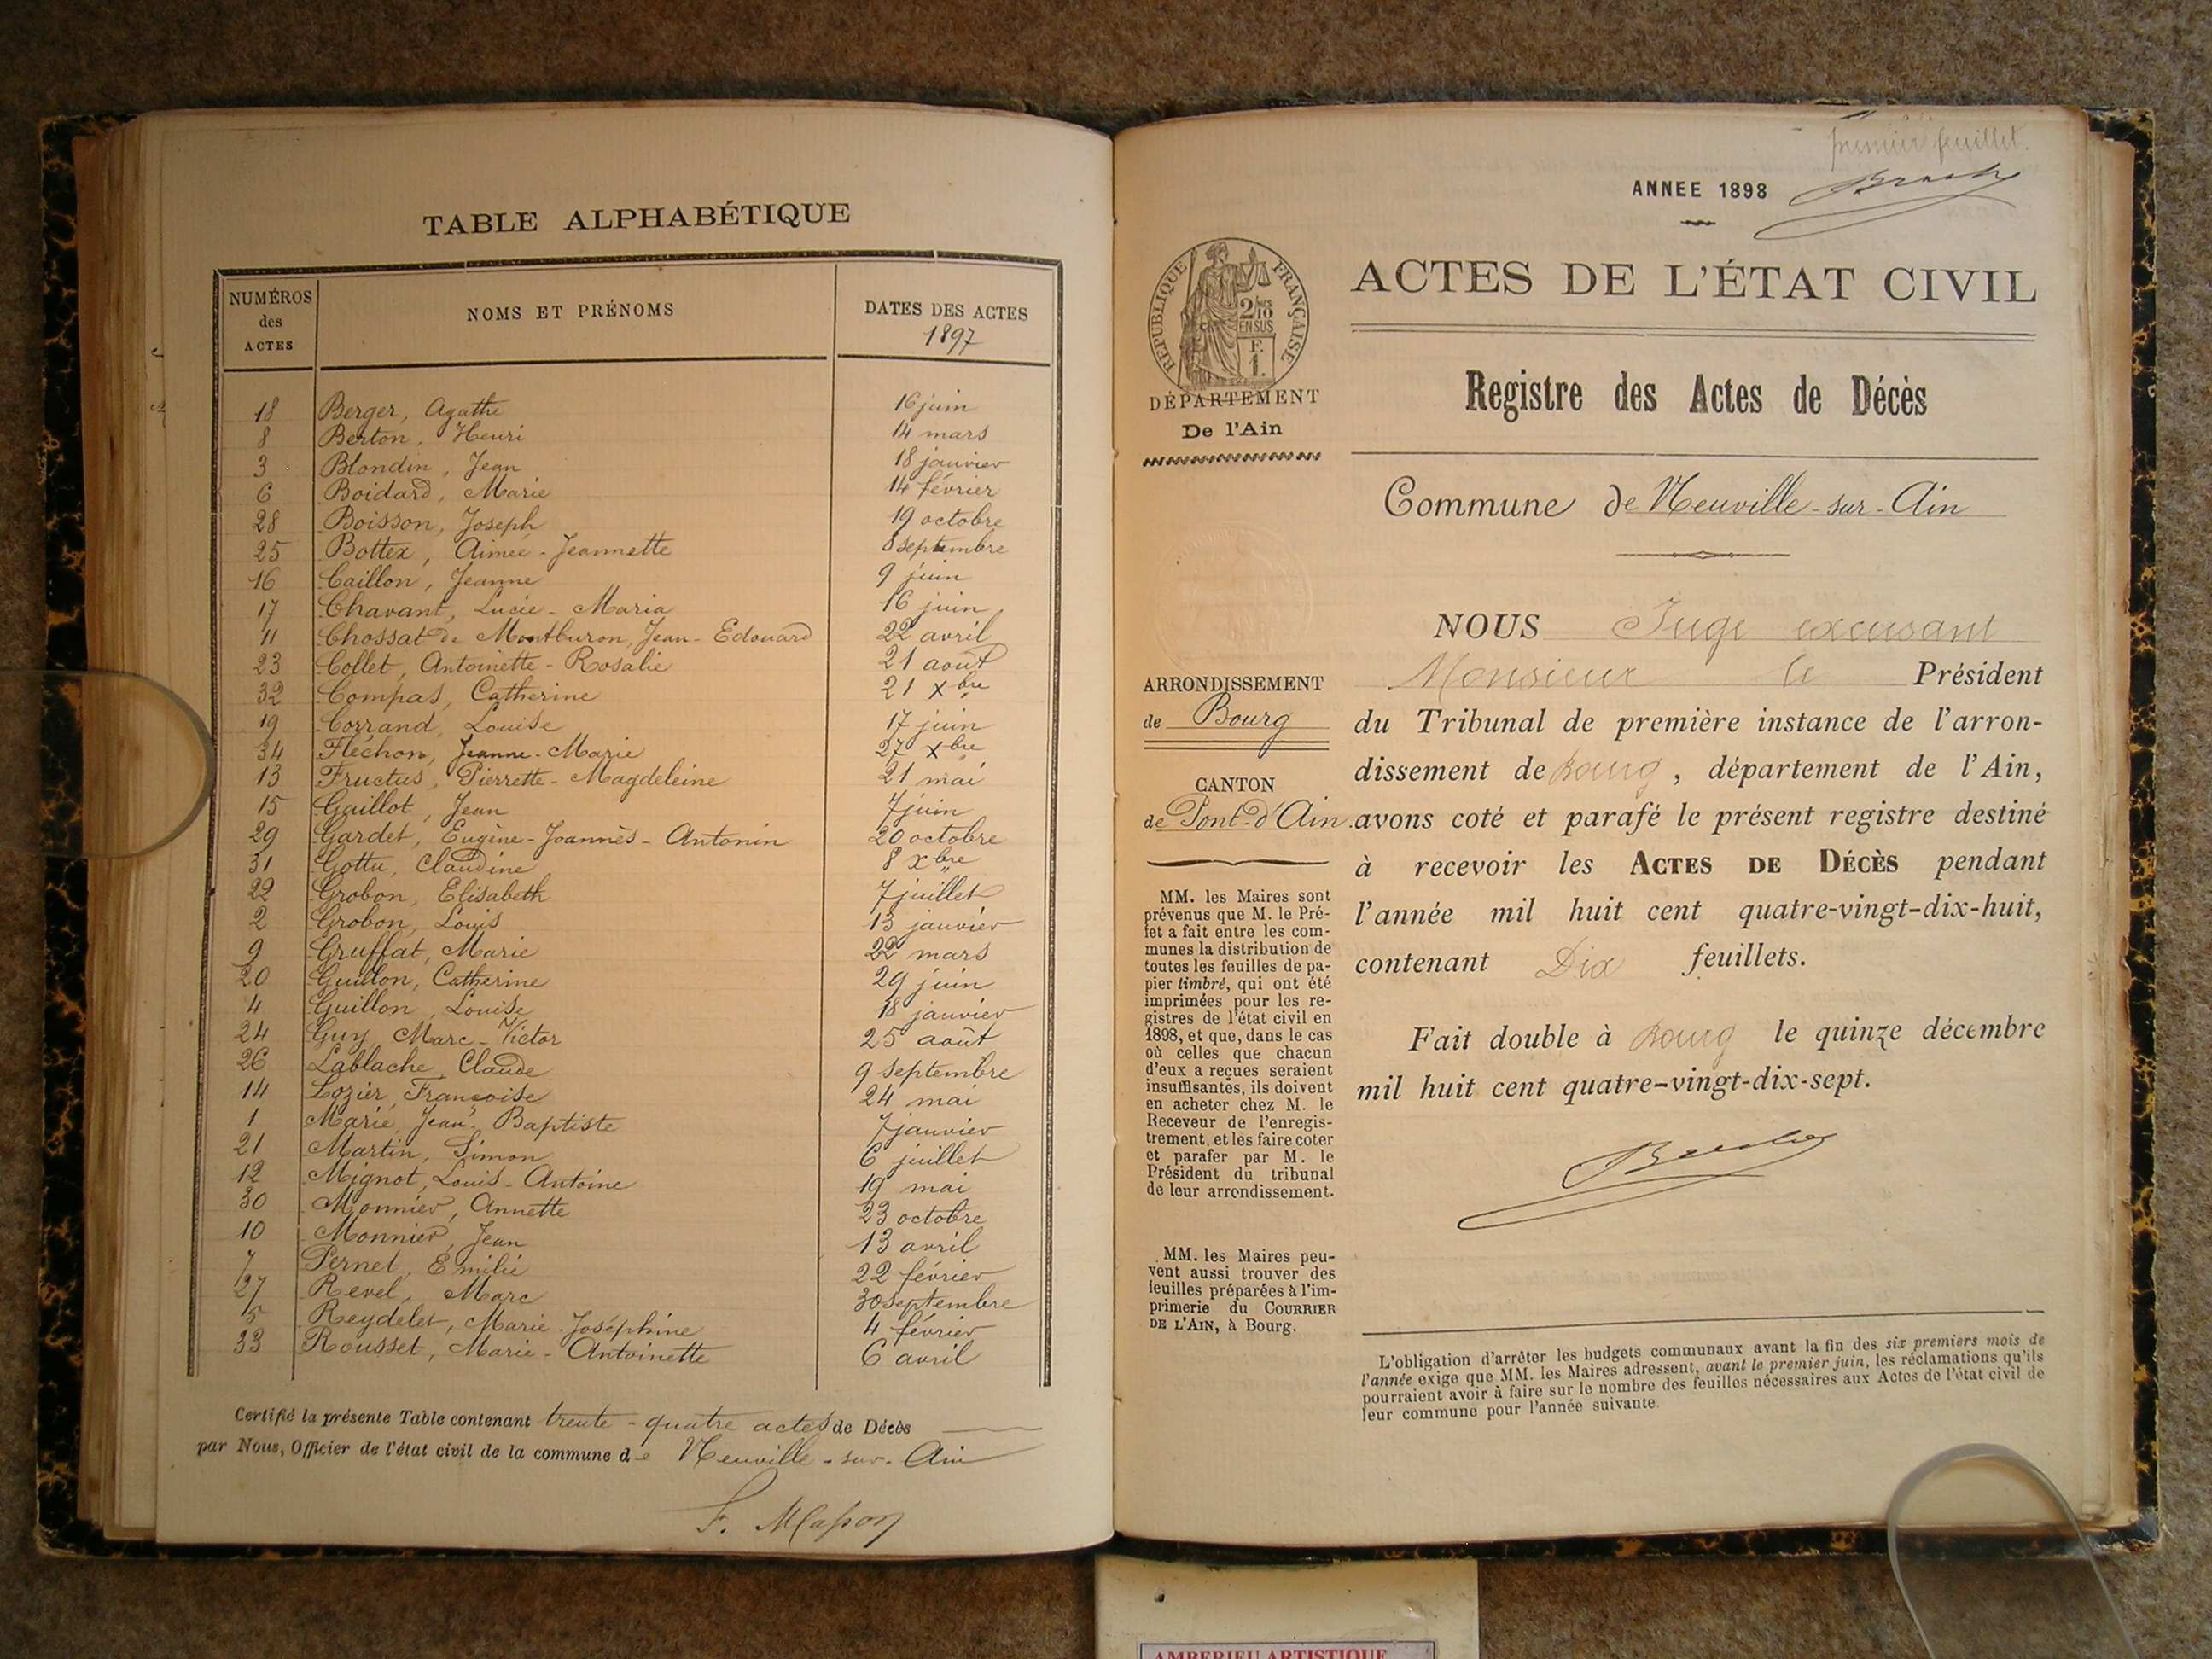 TABLE ALPHABÉTIQUE
NUMÉROS des ACTES NOMS ET PRÉNOMS DATES DES ACTES 1897
18 Berger, Agathe 16 juin
8 Berton, Henri 14 mars
3 Blondin, Jean 18 janvier
6 Boidard, Marie 14 février
28 Boisson, Joseph 19 octobre
25 Bottex, Aimée-Jeannette 8 septembre
16 Caillon, Jeanne 9 juin
17 Chavant, Lucie-Maria 16 juin
11 Chossat de Montburon, Jean-Edouard 22 avril
23 Collet, Antoinette-Rosalie 21 août
32 Compas, Catherine 21 xbre
19 Corrand, Louise 17 juin
34 Fléchon, Jeanne-Marie 27 xbre
13 Fructus, Pierrette-Magdeleine 21 mai
15 Gaillot, Jean 7 juin
29 Gardet, Eugène-Joannès-Antonin 20 octobre
31 Gottu, Claudine 8 xbre
22 Grobon, Elisabeth 7 juillet
2 Grobon, Louis 13 janvier
9 Gruffat, Marie 22 mars
20 Guillon, Catherine 29 juin
4 Guillon, Louise 18 janvier
24 Guy, Marc-Victor 25 août
26 Lablache, Claude 9 septembre
14 Lozier, Françoise 24 mai
1 Marie, Jean-Baptiste 7 janvier
21 Martin, Simon 6 juillet
12 Mignot, Louis-Antoine 19 mai
30 Monnier, Annette 23 octobre
10 Monnier, Jean 13 avril
7 Pernet, Emilie 22 février
27 Revel, Marc 30 septembre
5 Reydelet, Marie-Joséphine 4 février
33 Rousset, Marie-Antoinette 6 avril
Certifié la présente Table contenant trente-quatre actes de Décès
par Nous, Officier de l'état civil de la commune de Neuville-sur-Ain
F. Masson
premier feuillet.
ANNEE 1898
RÉPUBLIQUE FRANÇAISE
2/10 EN SUS
F. 1.
ACTES DE L'ÉTAT CIVIL
DÉPARTEMENT
De l'Ain
Registre des Actes de Décès
Commune de Neuville-sur-Ain
ARRONDISSEMENT
de Bourg
CANTON
de Pont-d'Ain
MM. les Maires sont
prévenus que M. le Pré-
fet a fait entre les com-
munes la distribution de
toutes les feuilles de pa-
pier timbré, qui ont été
imprimées pour les re-
gistres de l'état civil en
1898, et que, dans le cas
où celles que chacun
d'eux a reçues seraient
insuffisantes, ils doivent
en acheter chez M. le
Receveur de l'enregis-
trement, et les faire coter
et parafer par M. le
Président du tribunal
de leur arrondissement.
MM. les Maires peu-
vent aussi trouver des
feuilles préparées à l'im-
primerie du COURRIER
DE L'AIN, à Bourg.
NOUS Juge excusant
Monsieur le Président
du Tribunal de première instance de l'arron-
dissement de Bourg, département de l'Ain,
avons coté et parafé le présent registre destiné
à recevoir les ACTES DE DÉCÈS pendant
l'année mil huit cent quatre-vingt-dix-huit,
contenant Dix feuillets.
Fait double à Bourg le quinze décembre
mil huit cent quatre-vingt-dix-sept.
L'obligation d'arrêter les budgets communaux avant la fin des six premiers mois de
l'année exige que MM. les Maires adressent, avant le premier juin, les réclamations qu'ils
pourraient avoir à faire sur le nombre des feuilles nécessaires aux Actes de l'état civil de
leur commune pour l'année suivante.
AMBERIEU ARTISTIQUE